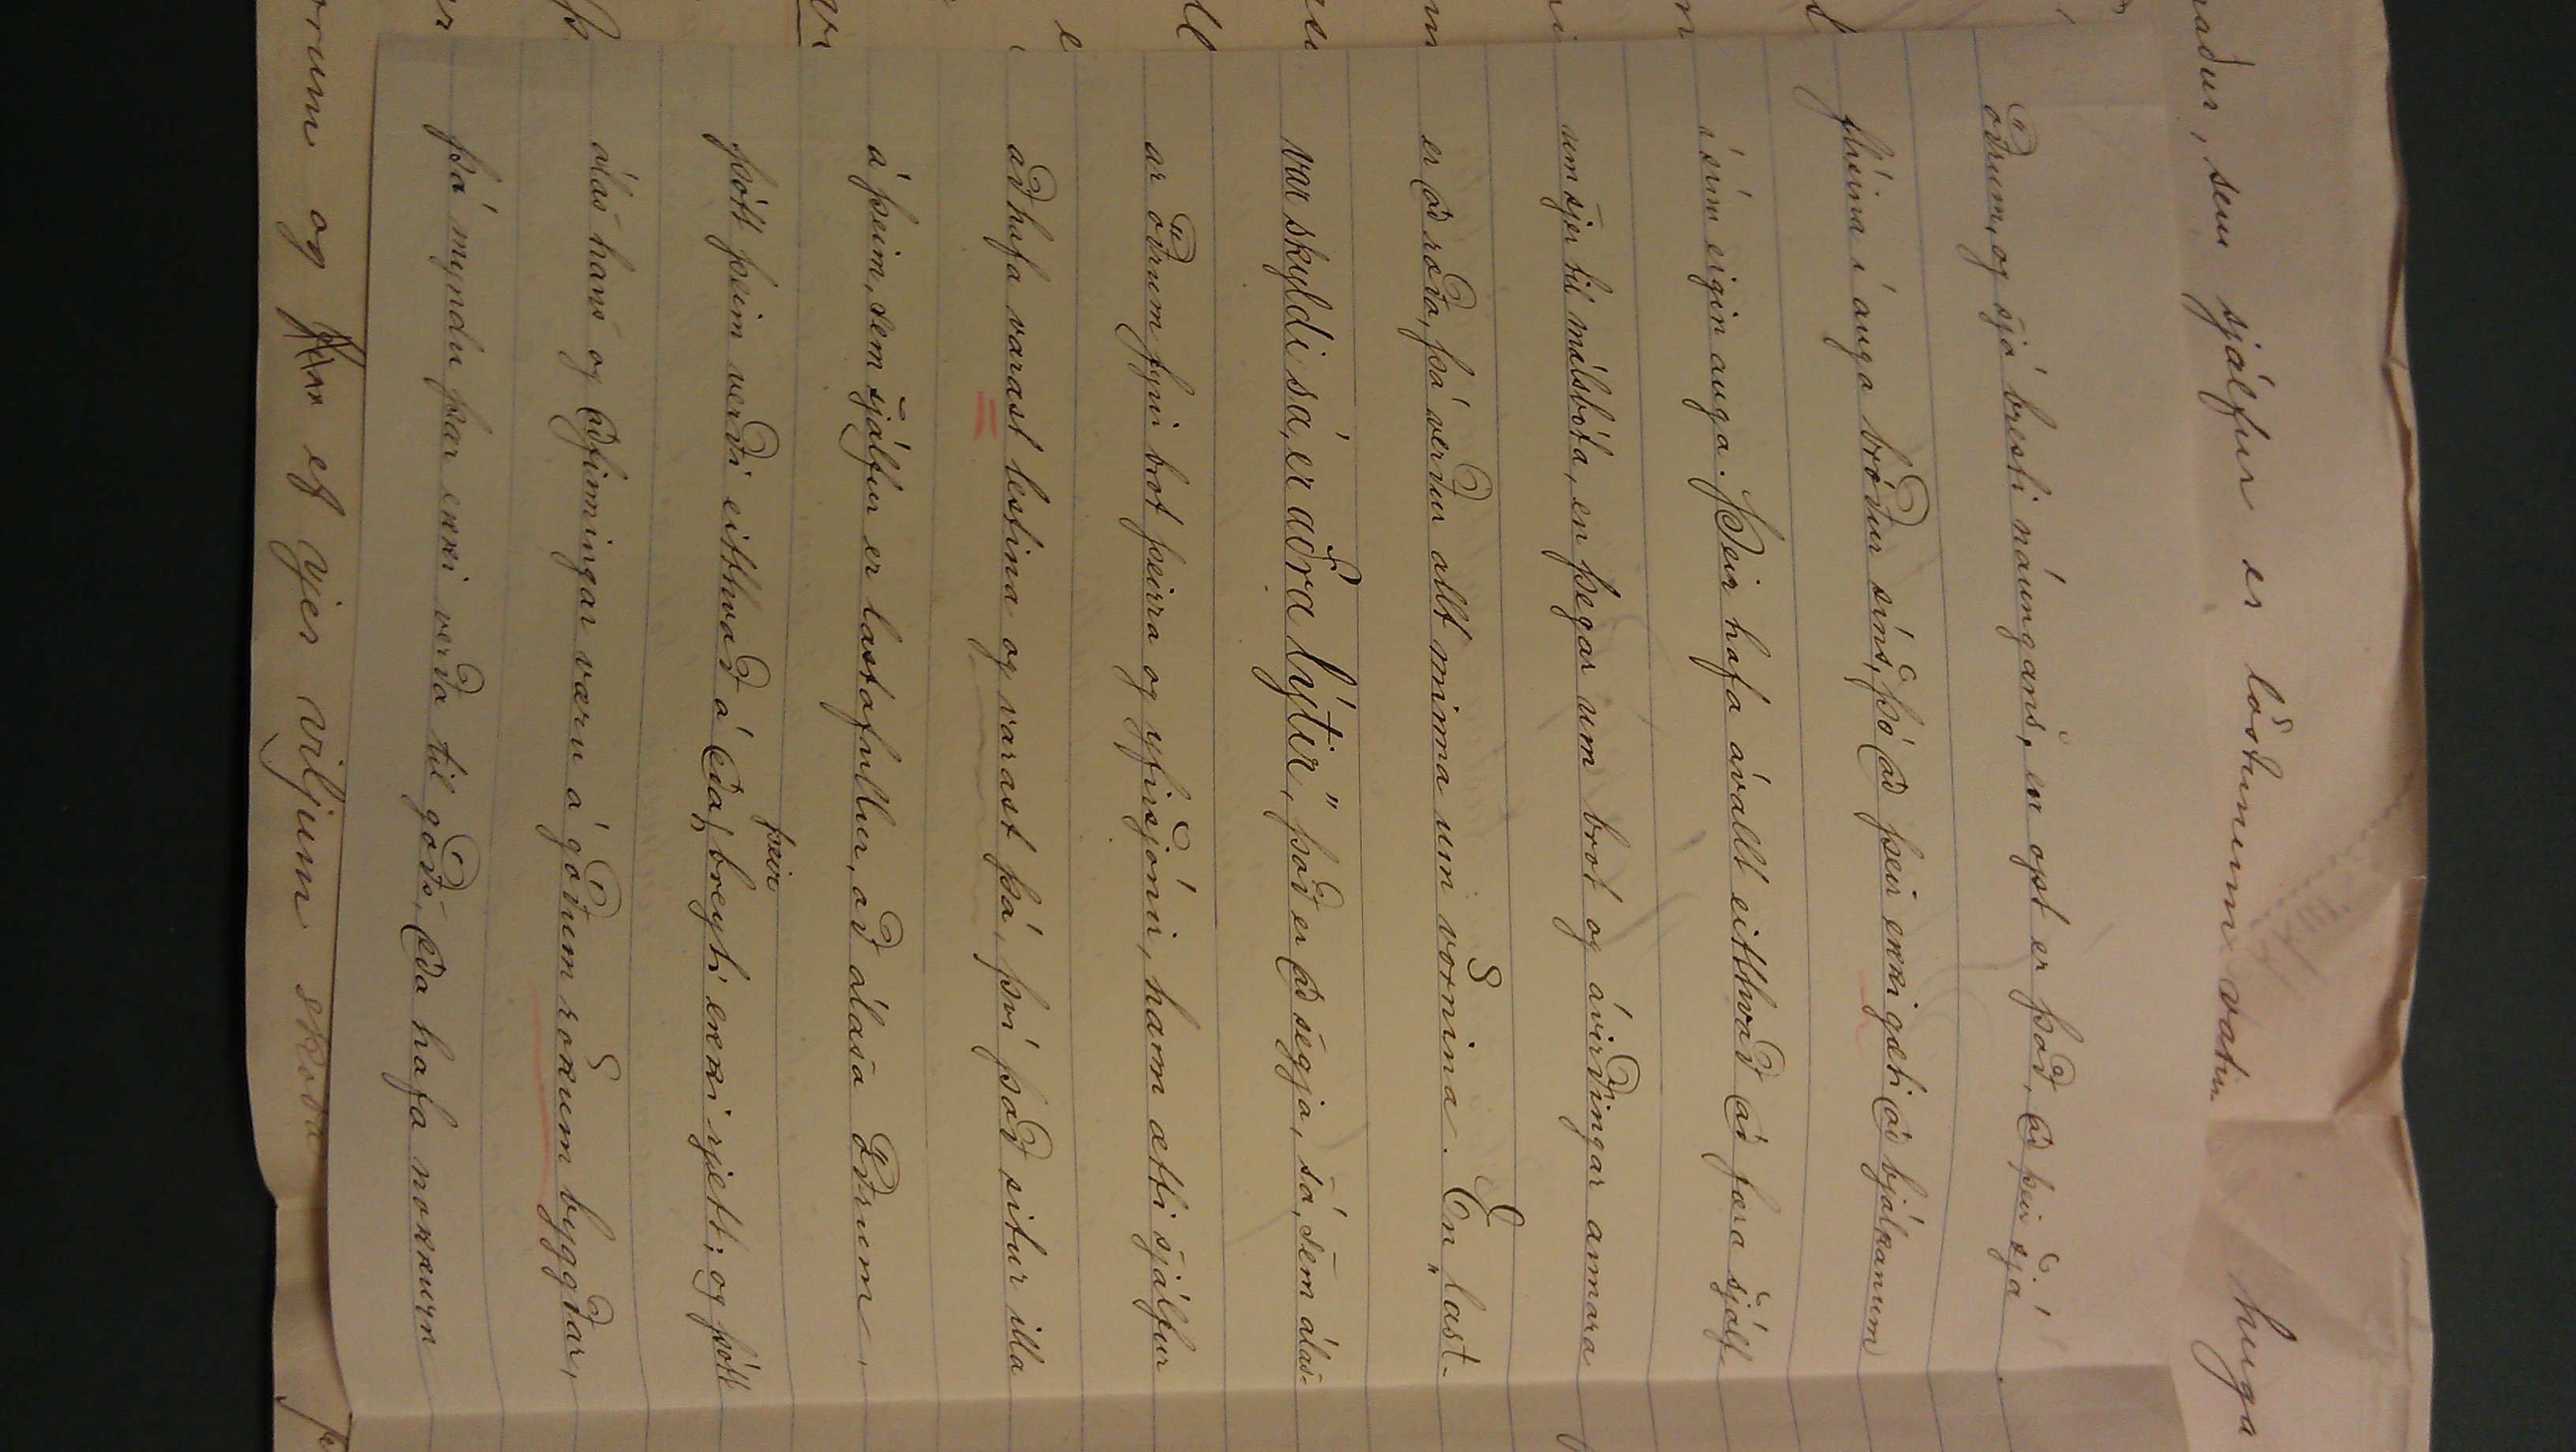 naður, sem sjálfur er löstunum vatin huga
öðrum, og sjá bresti náungans, en opt er það, að þeir sjá
flísina í auga bróður síns, þó að þeir ekki gæti að bjálkanum
í sínu eigin auga. Þeir hafa ávallt eitthvað að færa sjálf-
um sjer til málsbóta, en þegar um brot og ávirðingar annara
er að ræða, þá verður allt minna um vörnina. En „last-
var skyldi sá, er aðra lýtir," það er að segja, sá, sem álas-
ar öðrum fyri brot þeirra og yfirsjónir, hann ætti sjálfur
að hafa varast lestina og varast þá, því það situr illa
á þeim, sem sjálfur er lastafullur, að álasa öðrum,
þótt þeim verði eitthvað á eða þeir breyti ekki rjett; og þótt
álas hans og aðfinningar væru á góðum rökum byggðar,
þá myndu þær ekki verða til góðs, eða hafa nokkurn
orum og ef vjer viljum skoða